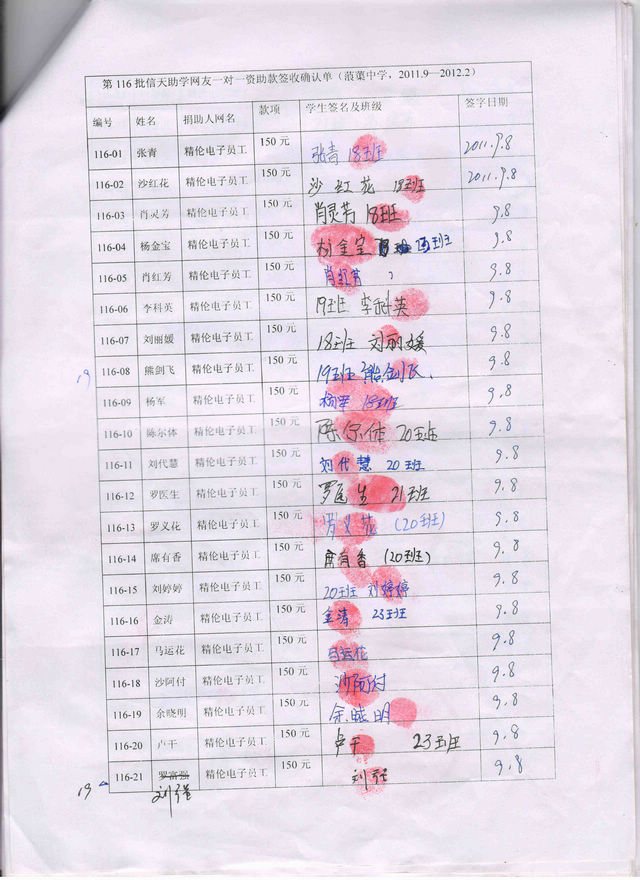 第 116 批信天助学网友一对一资助款签收确认单（菠萁中学，2011.9—2012.2）
编号 姓名 捐助人网名 款项 学生签名及班级 签字日期
116-01 张青 精伦电子员工 150 元 张青 18班 2011.9.8
116-02 沙红花 精伦电子员工 150 元 沙红花 18班 2011.9.8
116-03 肖灵芳 精伦电子员工 150 元 肖灵芳 18班 9.8
116-04 杨金宝 精伦电子员工 150 元 杨金宝 班 9.8
116-05 肖红芳 精伦电子员工 150 元 肖红芳 9.8
116-06 李科英 精伦电子员工 150 元 19班 李科英 9.8
116-07 刘丽媛 精伦电子员工 150 元 18班 刘丽媛 9.8
19 116-08 熊剑飞 精伦电子员工 150 元 19班 熊剑飞. 9.8
116-09 杨军 精伦电子员工 150 元 杨军 18班 9.8
116-10 陈尔体 精伦电子员工 150 元 陈尔体 20班 9.8
116-11 刘代慧 精伦电子员工 150 元 刘代慧 20班 9.8
116-12 罗医生 精伦电子员工 150 元 罗医生 21班 9.8
116-13 罗义花 精伦电子员工 150 元 罗义花 (20班) 9.8
116-14 席有香 精伦电子员工 150 元 席有香 (20班) 9.8
116-15 刘婷婷 精伦电子员工 150 元 20班 刘婷婷 9.8
116-16 金涛 精伦电子员工 150 元 金涛 23班 9.8
116-17 马运花 精伦电子员工 150 元 马运花 9.8
116-18 沙阿付 精伦电子员工 150 元 沙阿付 9.8
116-19 余晓明 精伦电子员工 150 元 余晓明 9.8
116-20 卢干 精伦电子员工 150 元 卢干 23班 9.8
19 116-21 罗富强 精伦电子员工 150 元 刘强 9.8
刘强